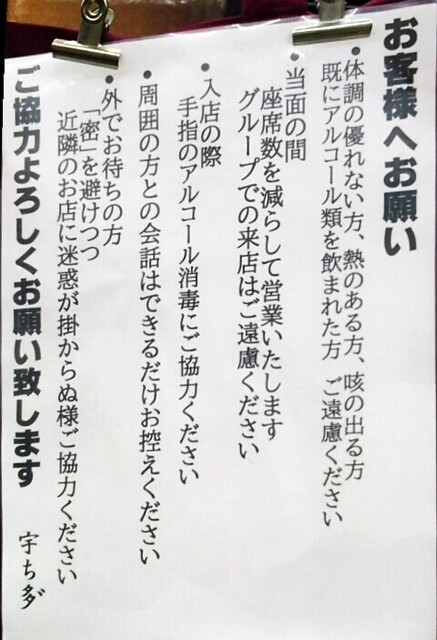 お客様へお願い
•体調の優れない方、熱のある方、咳の出る方
既にアルコール類を飲まれた方 ご遠慮ください
•当面の間
座席数を減らして営業いたします
グループでの来店はご遠慮ください
•入店の際
手指のアルコール消毒にご協力ください
•周囲の方との会話はできるだけお控えください
•外でお待ちの方
「密」を避けつつ
近隣のお店に迷惑が掛からぬ様ご協力ください
ご協力よろしくお願い致します
宇ち多゙